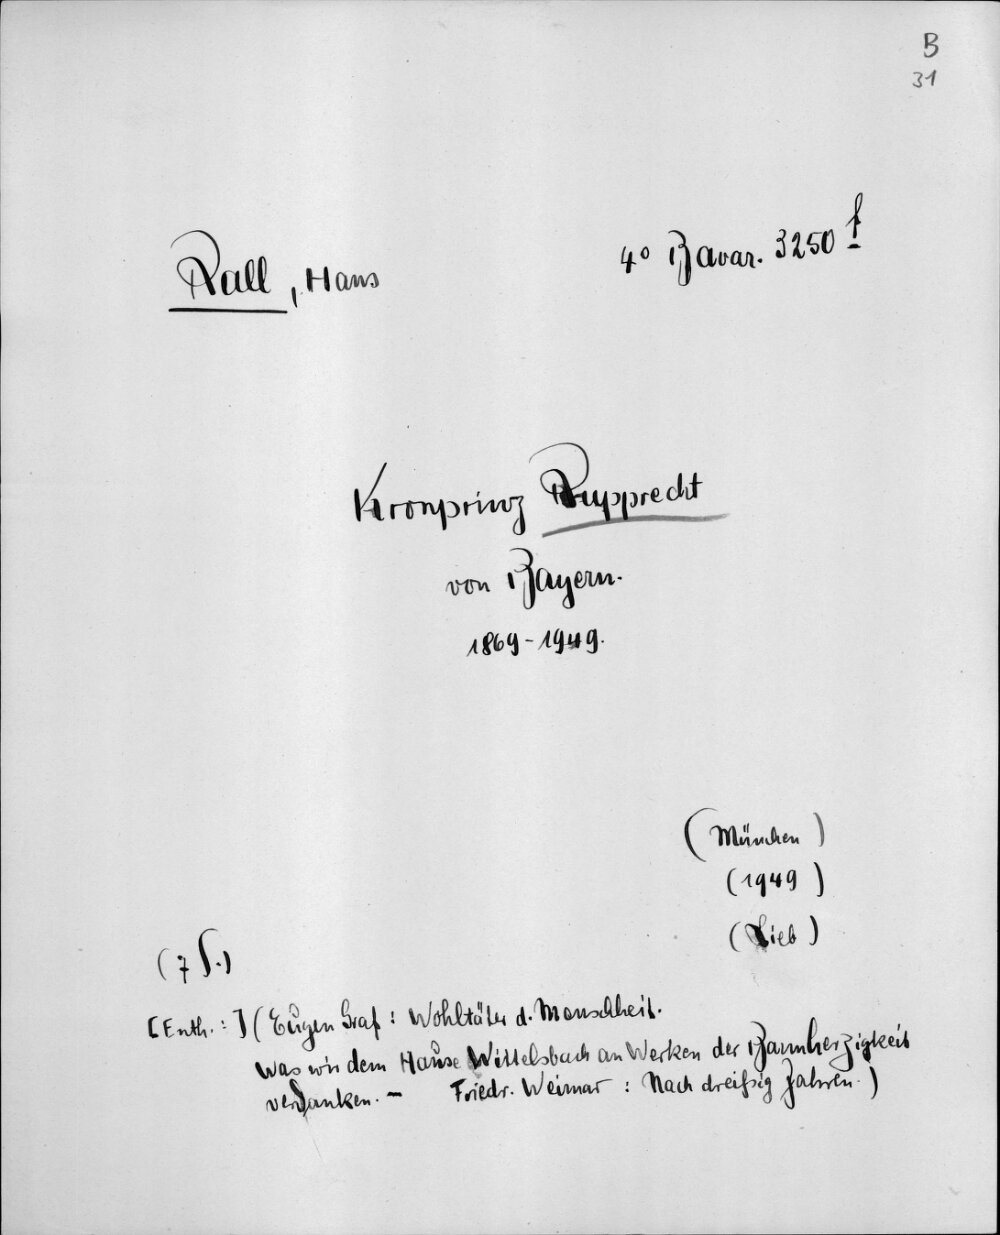 B
31
Rall, Hans
4° Bavar. 3250 f
Kronprinz Rupprecht
von Bayern.
1869-1949.
(München)
(1949)
(Lieb)
(7 S.)
[Enth.:] (Eugen Graf: Wohltäter d. Menschheit.
Was wir dem Hause Wittelsbach an Werken der Barmherzigkeit
verdanken. - Friedr. Weimar: Nach dreißig Jahren.)